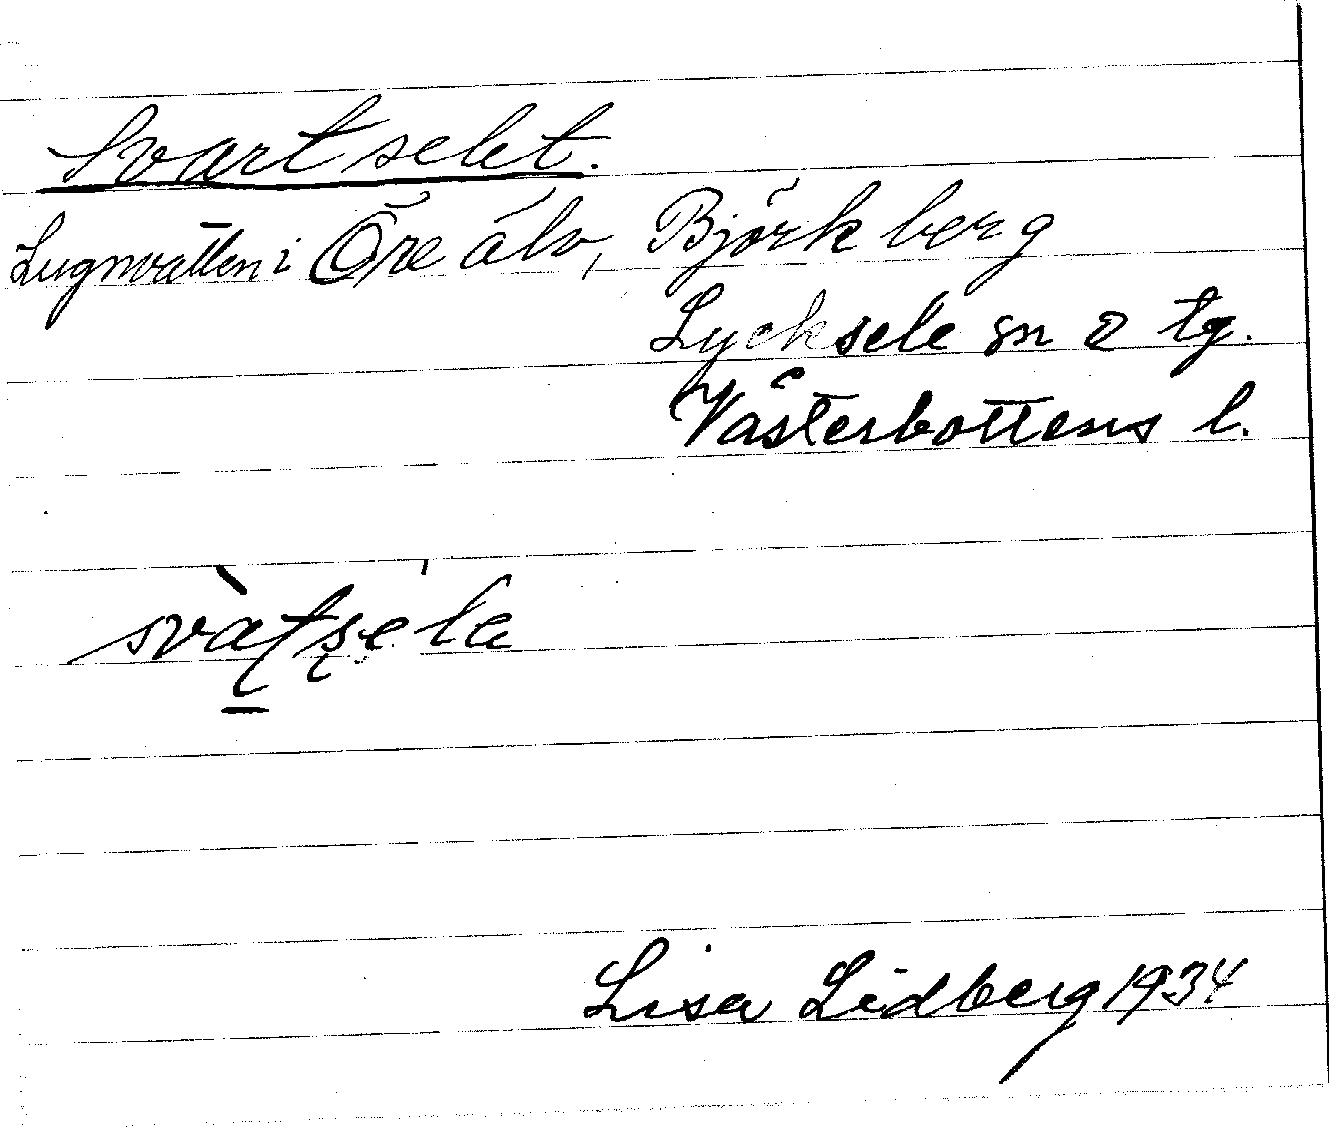 Svartselet.
Lugnvatten i Öre älv, Björkberg
Lycksele sn o tg.
Västerbottens l.
Lisa Lidberg 1934